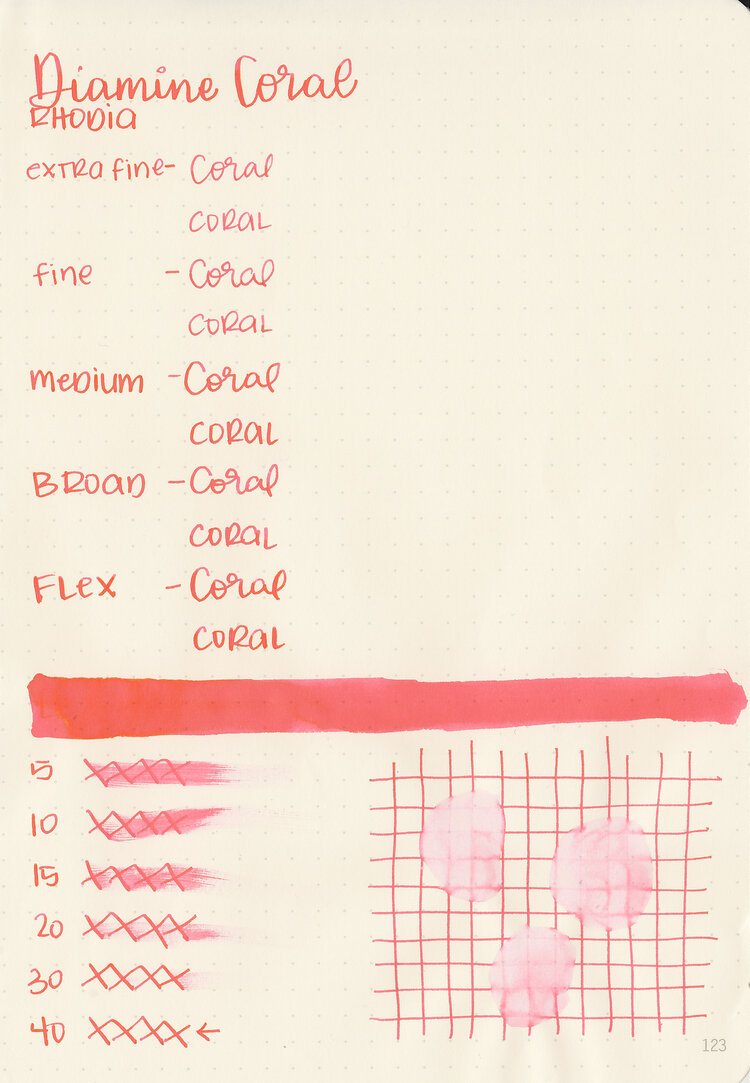 Diamine Coral
RHODIA
extra fine- Coral
CORAL
fine - Coral
CORAL
medium - Coral
CORAL
BROAD - Coral
CORAL
FLex - Coral
CORAL
5 XXXX
10 XXXX
15 XXXX
20 XXXX
30 XXXX
40 XXXX ←
123